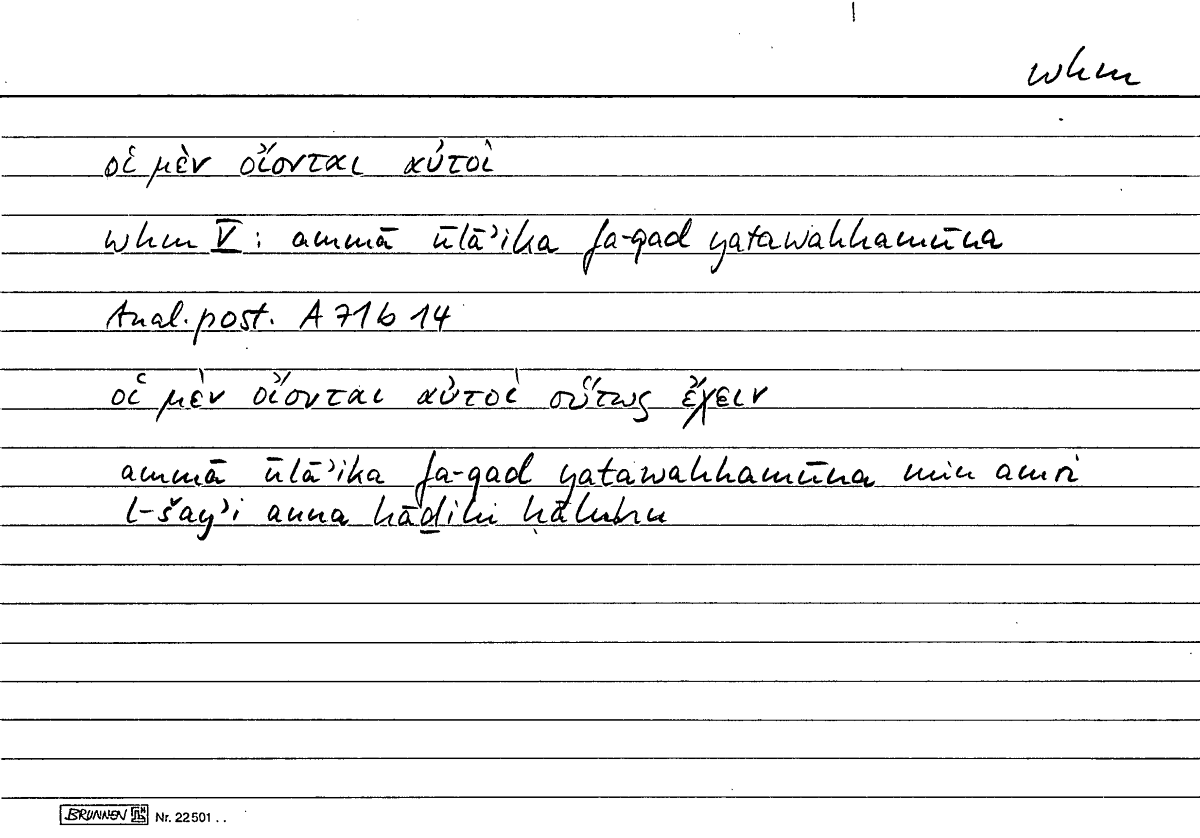 whm
οἱ μὲν οἴονται αὐτοὶ
whm V: ammā ūlā’ika fa-qad yatawahhamūna
Anal. post. A 71 b 14
οἱ μὲν οἴονται αὐτοὶ οὕτως ἔχειν
ammā ūlā’ika fa-qad yatawahhamūna min amri
l-šay’i anna hāḏihi ḥāluhu
BRUNNEN Nr. 22501 . .